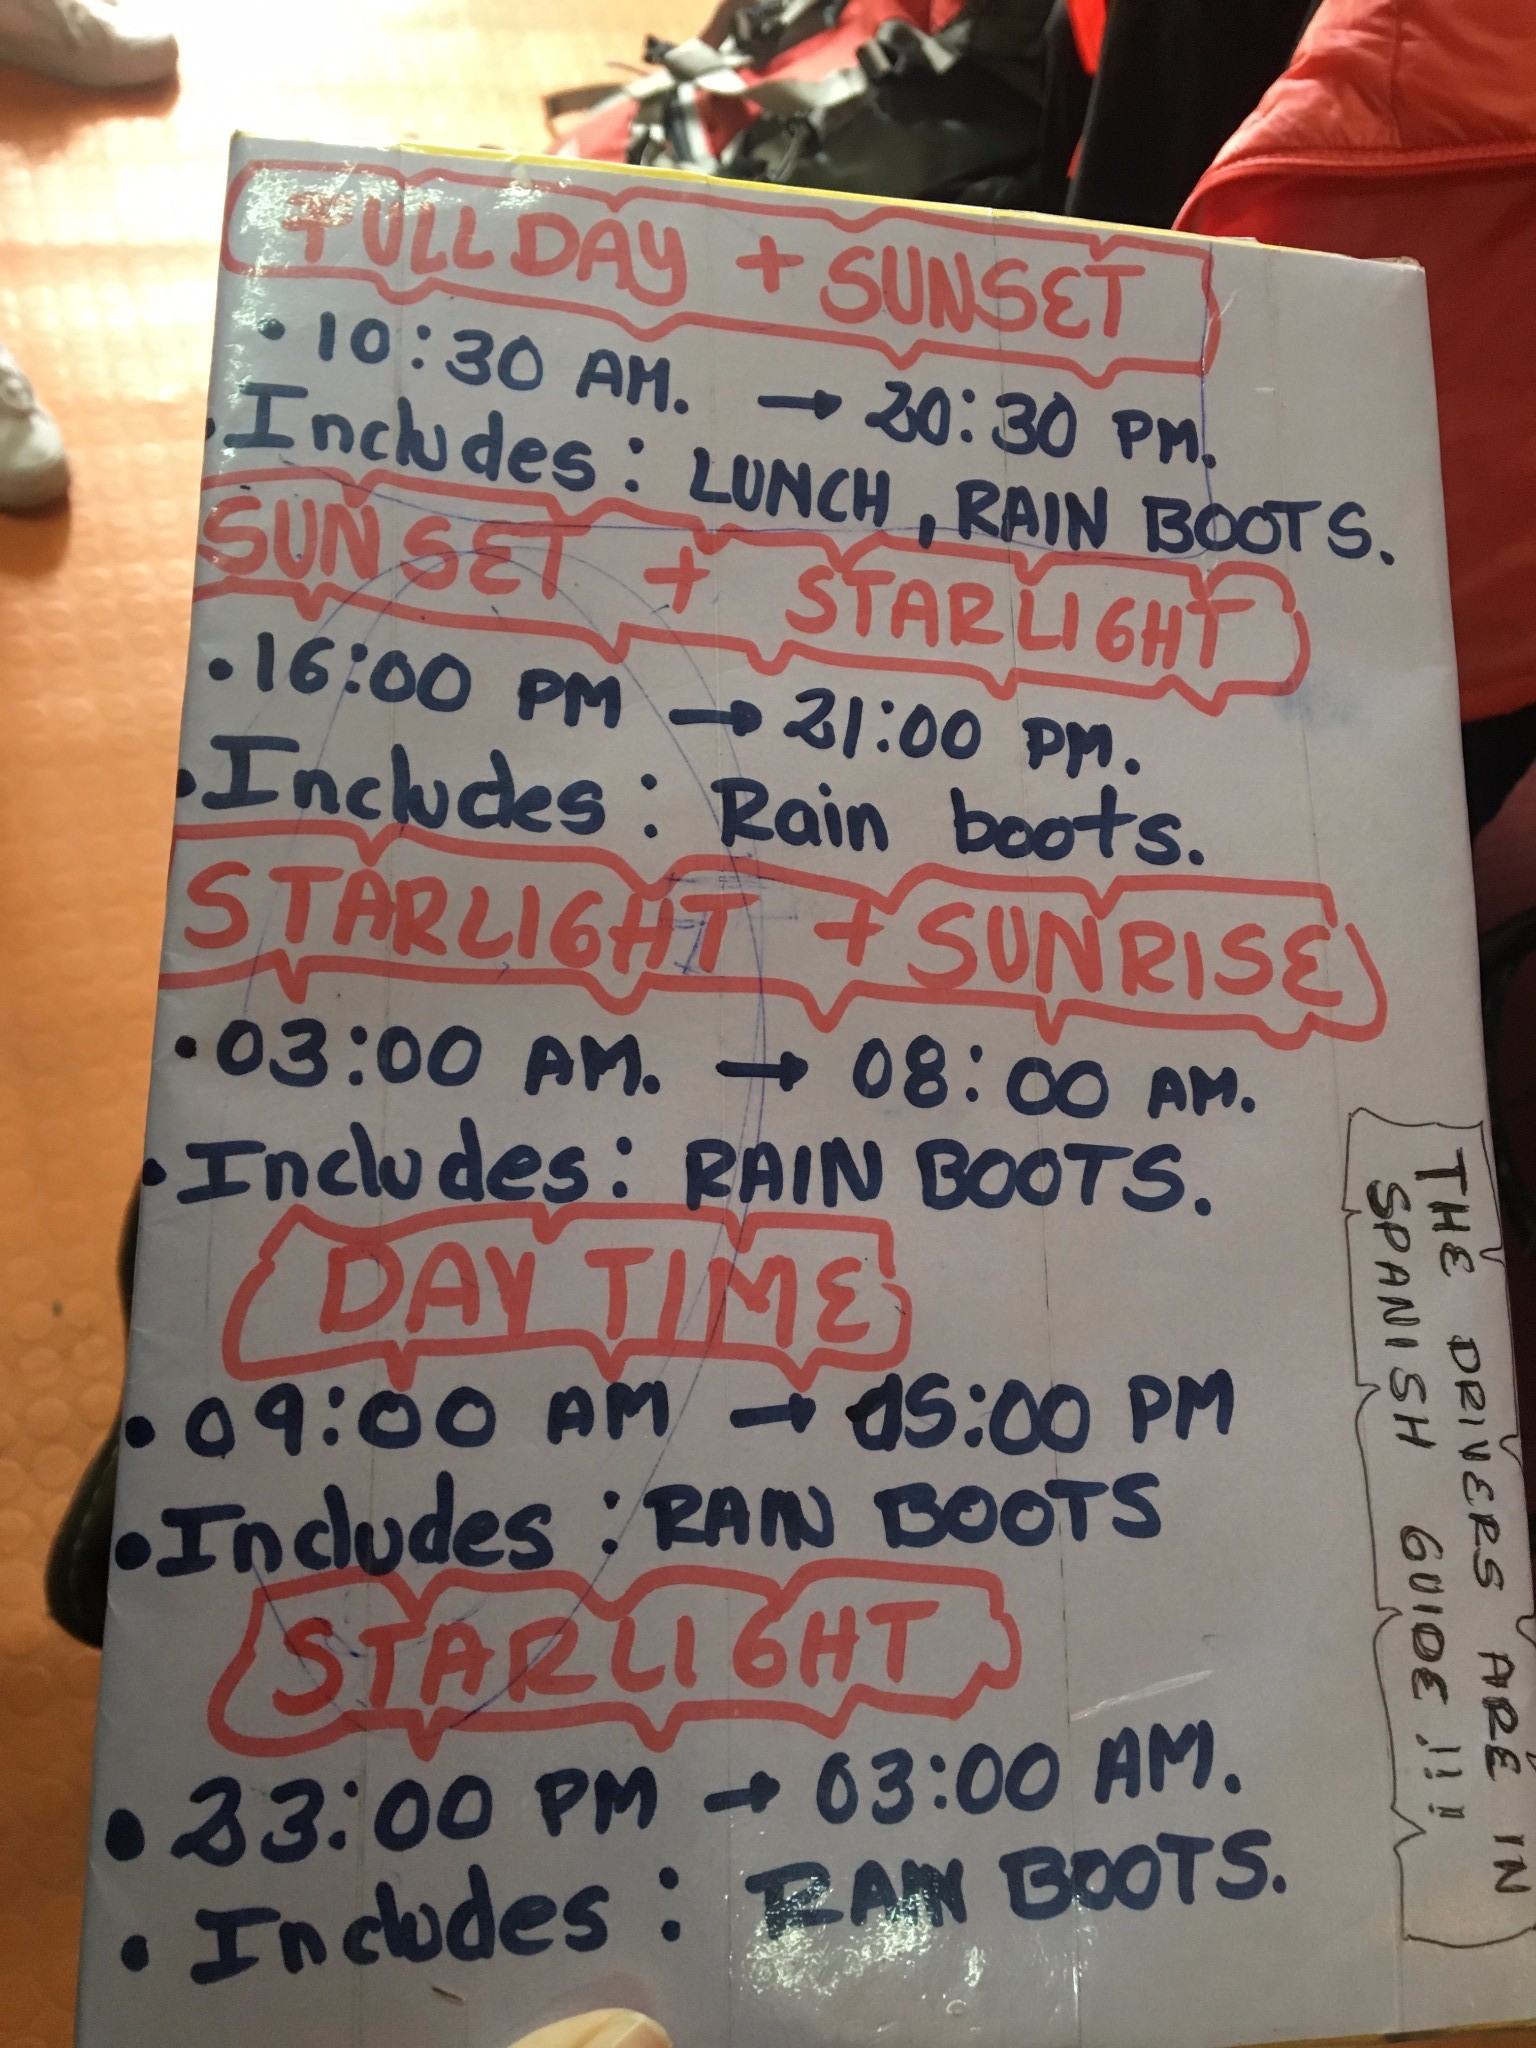 FULL DAY + SUNSET
• 10:30 AM. → 20:30 PM.
• Includes: LUNCH, RAIN BOOTS.
SUNSET + STARLIGHT
• 16:00 PM → 21:00 PM.
• Includes: Rain boots.
STARLIGHT + SUNRISE
• 03:00 AM. → 08:00 AM.
• Includes: RAIN BOOTS.
DAY TIME
• 09:00 AM → 05:00 PM
• Includes: RAIN BOOTS
STARLIGHT
• 23:00 PM → 03:00 AM.
• Includes: RAIN BOOTS.
THE DRIVERS ARE IN
SPANISH GUIDE !!!